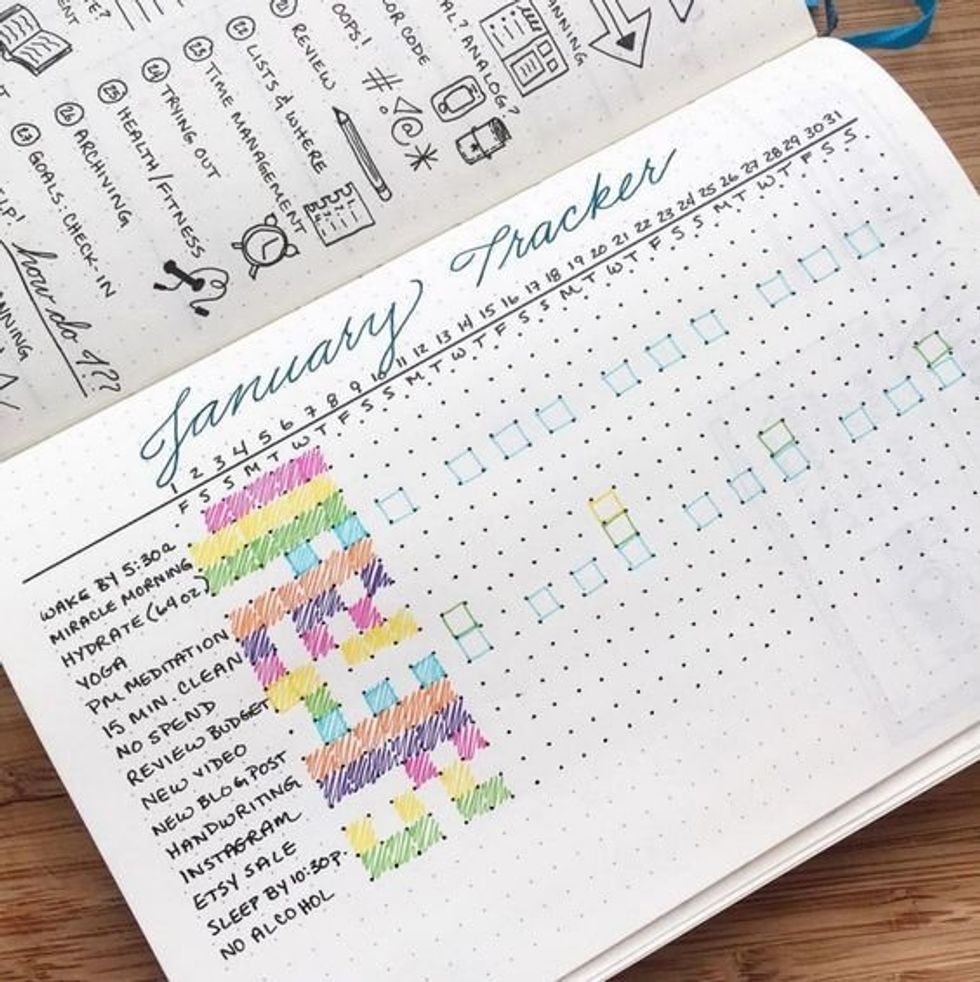 PLANNING
OOPS!
COLOR CODE
ANALOG?
㉑ REVIEW
#.@*
㉒ LISTS & WHERE
㉓ TIME MANAGEMENT
㉔ TRYING OUT
㉕ HEALTH/FITNESS
㉖ ARCHIVING
㉗ GOALS: CHECK-IN
how do I??
January Tracker
1 2 3 4 5 6 7 8 9 10 11 12 13 14 15 16 17 18 19 20 21 22 23 24 25 26 27 28 29 30 31
F S S M T W T F S S M T W T F S S M T W T F S S M T W T F S S
WAKE BY 5:30a
MIRACLE MORNING
HYDRATE (64 oz)
YOGA
PM MEDITATION
15 MIN. CLEAN
NO SPEND
REVIEW BUDGET
NEW VIDEO
NEW BLOG POST
HANDWRITING
INSTAGRAM
ETSY SALE
SLEEP BY 10:30p.
NO ALCOHOL